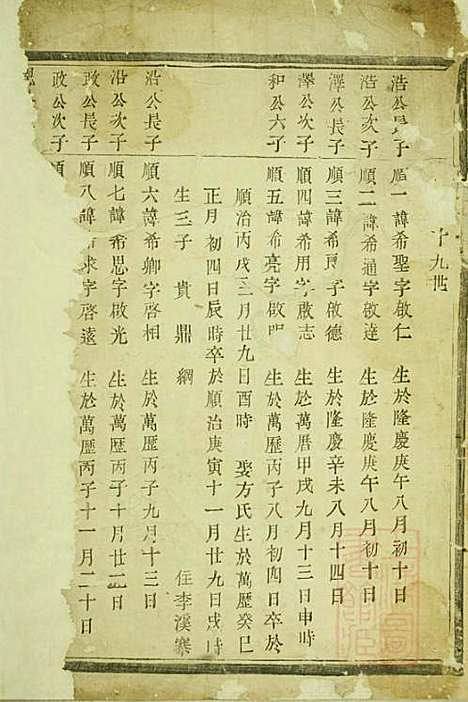 十九世
浩公長子 順一諱希聖字啟仁 生於隆慶庚午八月初十日
浩公次子 順二諱希通字啟達 生於隆慶庚午八月初十日
澤公長子 順三諱希 子啟德 生於隆慶辛未八月十四日
澤公次子 順四諱希用字啟志 生於萬曆甲戌九月十三日申時
和公六子 順五諱希亮字啟明 生於萬歷丙子八月初四日卒於
順治丙戌三月廿九日酉時 娶方氏生於萬歷癸巳
正月初四日辰時卒於順治庚寅十一月廿九日戌時
生三子 貴 鼎 綱 住李溪寨
沿公長子 順六諱希卿字啓相 生於萬歷丙子九月十三日
沿公次子 順七諱希思字啟光 生於萬歷丙子十月廿二日
政公長子 順八諱 求字啓遠 生於萬歷丙子十一月二十日
政公次子 順